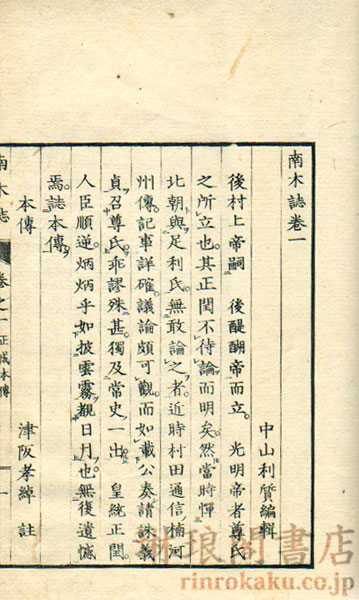 南木誌卷一
中山利質編輯
後村上帝嗣　後醍醐帝而立　光明帝者尊氏
之所立也其正閏不待論而明矣然當時憚
北朝與足利氏無敢論之者近時村田通信楠河
州傳記事詳確議論頗可觀而如載公奏請誅義
貞召尊氏乖謬殊甚獨及常史一出　皇統正閏
人臣順逆炳炳乎如披雲霧覩日月也無後遺憾
焉誌本傳
本傳　津阪孝綽註
南木誌　卷之一　正成本傳　一
琅閣書店
rinrokaku.co.jp